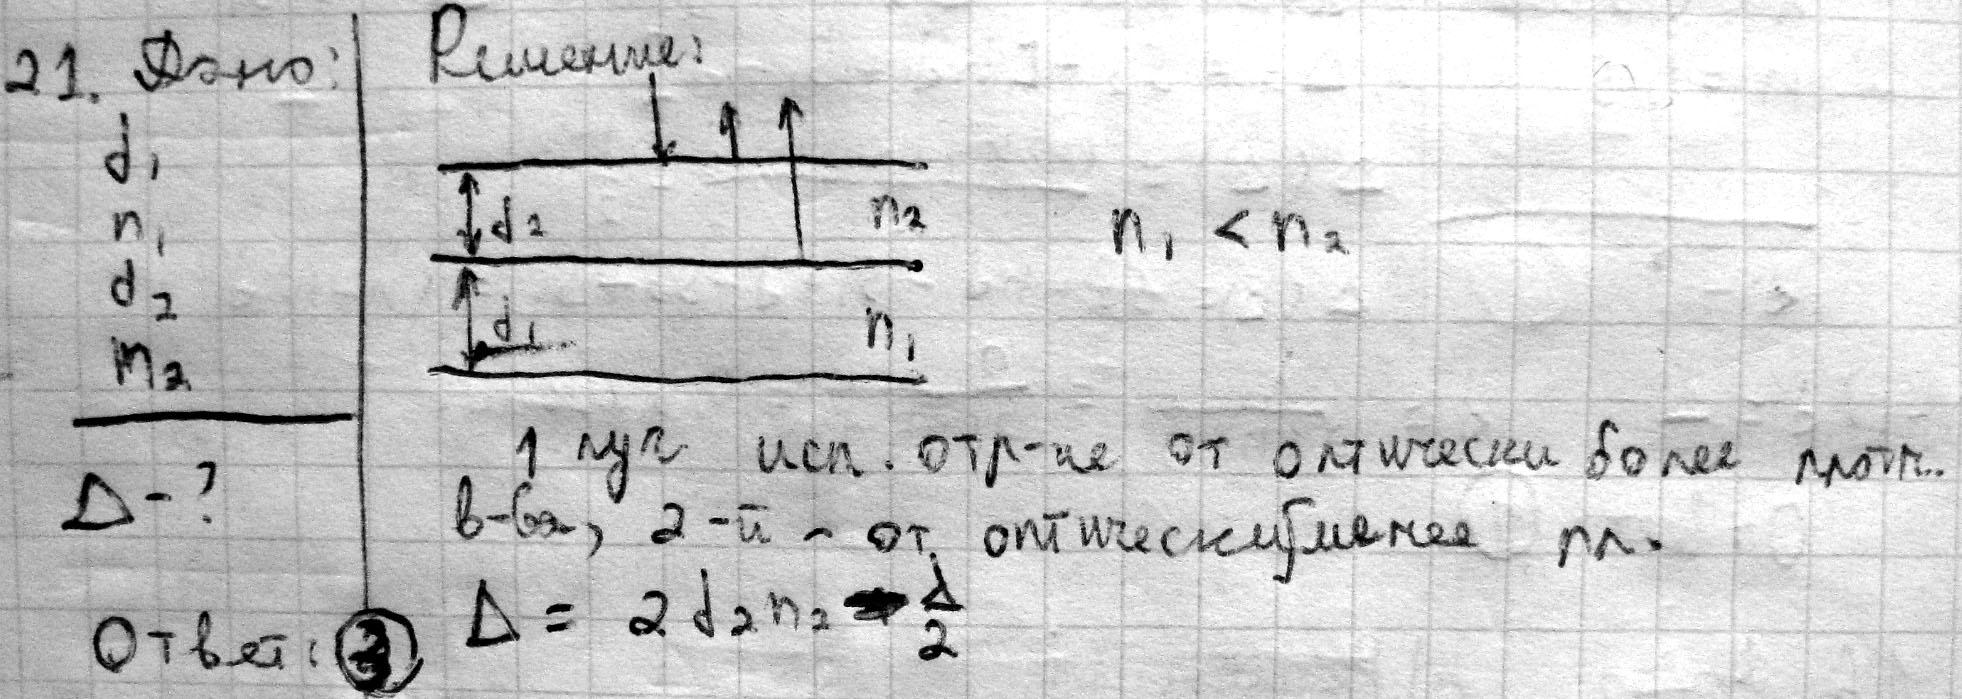 21. Дано:
d₁
n₁
d₂
m₂
Δ-?
Ответ: 3
Решение:
d₂ n₂
n₁ < n₂
d₁ n₁
1 луч исп. отр-ие от оптически более плотн.
в-ва, 2-й - от оптически менее пл.
Δ = 2d₂n₂ - λ/2